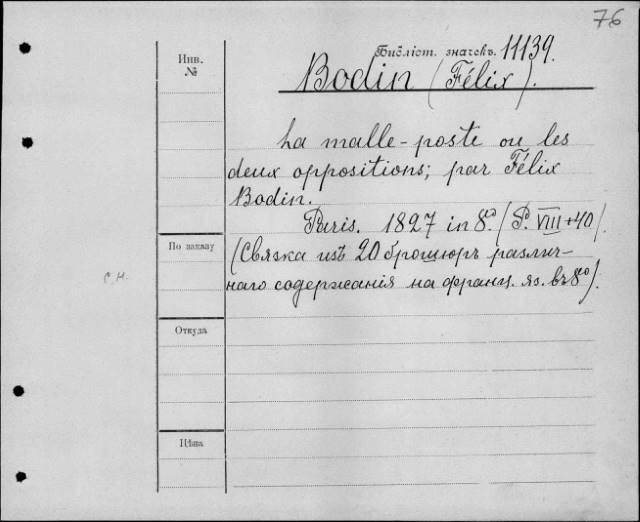 76
Инв.
№
Библіот. значекъ. 11139.
Bodin (Félix).
La malle-poste ou les
deux oppositions; par Félix
Bodin.
Paris. 1827 in 8º. (P. VIII+40).
По заказу
(Связка изъ 20 брошюръ различ-
наго содержанія на франц. яз. въ 8º).
с.н.
Откуда
Цѣна